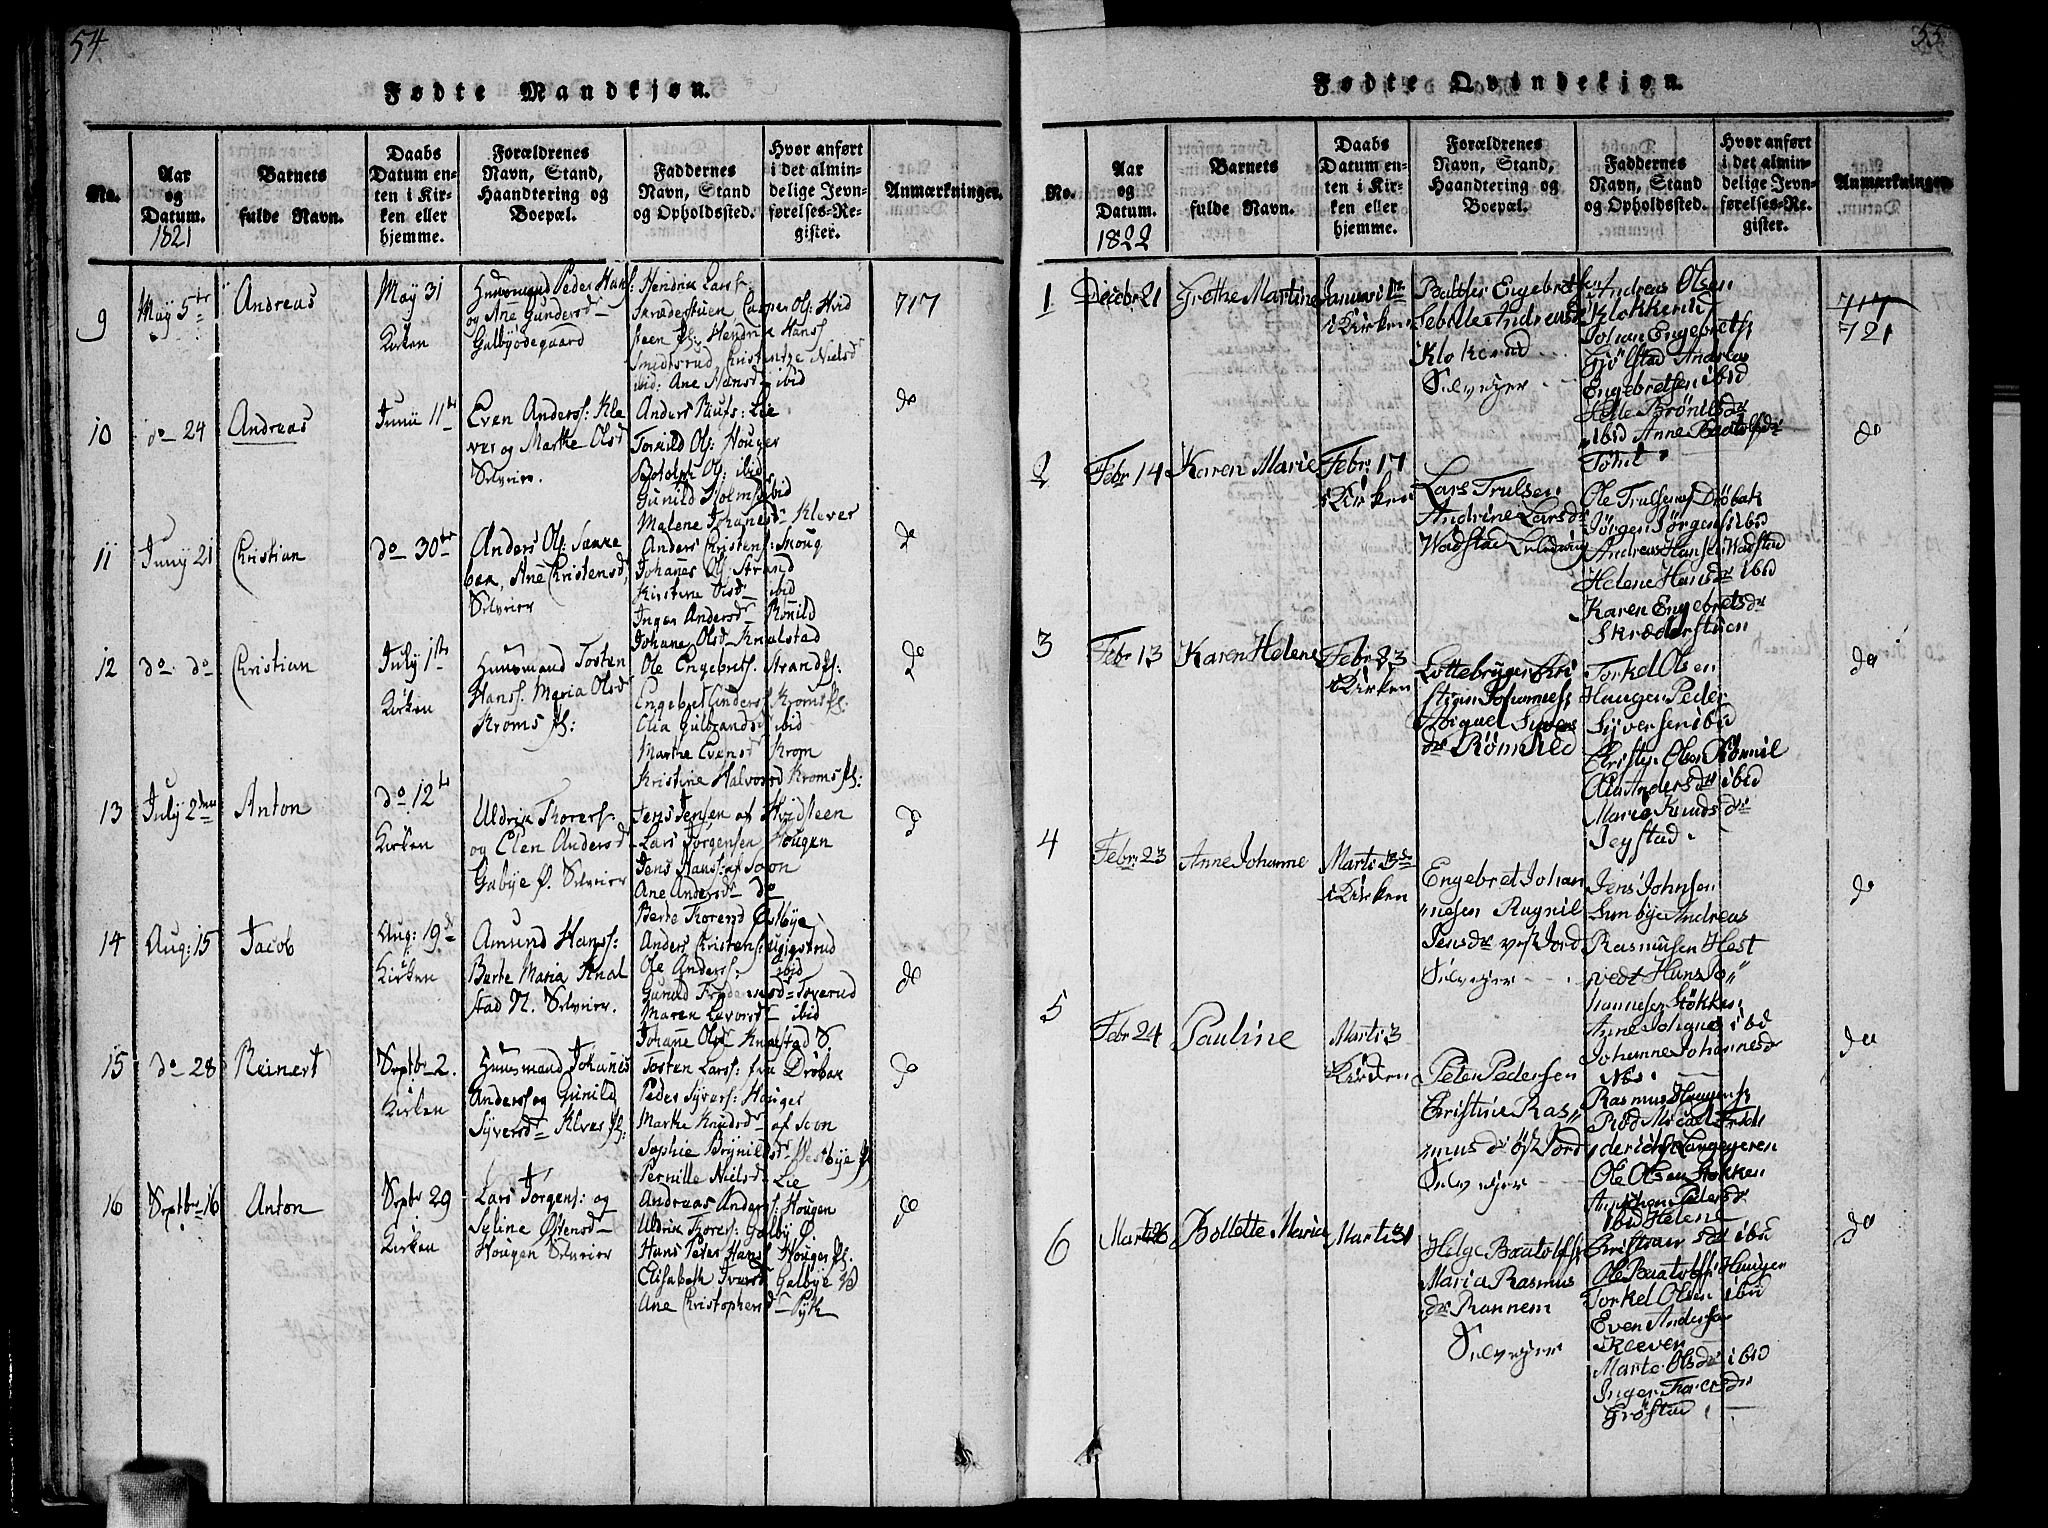 54
Fødte Mandkjøn.
No.
Aar
og
Datum.
1821
Barnets
fulde Navn.
Daabs
Datum en-
ten i Kir-
ken eller
hjemme.
Forældrenes
Navn, Stand,
Haandtering og
Boepæl.
Faddernes
Navn, Stand
og Opholdssted.
Hvor anført
i det almin-
delige Jevn-
førelses-Re-
gister.
Anmærkninger.
9
May 5te
Andreas
May 31
Kirken
Huusmand Peder Hans:
og Ane Gunders d
Galbyødegaard
Hendrik Lars
Casper Ol: Hvid
steen Hendrik Hans
Smidtsrud Christentze Niels d
ibid: Ane Hans d ibid
717
10
do 24
Andreas
Junii 11te
Even Anders: Kle
ver og Marthe Ols d
Selveier.
Anders Riis: Lie
Torkild Ol: Houger
Botolph Ol: ibid
Gunild Holms ibid
Malene Johanes d Klever
do
11
Juny 21
Christian
do 30te
Anders Ol:
Ane Christens d
Selveier
Anders Christens: Moug
Johanes Ol: Strand
Kirstine Ols d ibid
Inger Anders d Römild
Johane Ols d Knalstad
do
12
do do
Christian
July 1ste
Kirken
Huusmand Tosten
Hans: Maria Ols d
Kroms
Ole Engebrets: Strand
Engebret Gunders: Kroms
Olia Gulbrands d ibid
Marthe Evens d Krom
Kristine Halvors d Kroms
do
13
July 2den
Anton
do 12te
Kirken
Uldrik Thorers:
og Elen Anders d
Galbye Ø. Selveier
Jens Jensen af Hvidsteen
Lars Jørgensen Hougen
Jens Hans: af Soon
Ane Anders d do
Berte Thorens d Østbye
do
14
Aug: 15
Jacob
Aug: 19de
Kirken
Amund Hans:
Berte Maria Knal
stad N. Selveier.
Anders Christens:
Ole Anders: ibid
Gunild Toverud
Maren Levors d ibid
Johane Ols d Knalstad S.
do
15
do 28
Reinert
Septbr 2.
Kirken
Huusmand Johanes
Anders og Gunild
Syvers d Klever
Tosten Lars: fra Drøbak
Peder Syvers: Houger
Marthe Knuds d af Soon
Sophie Brynilds d Westbye
Pernille Niels d Lie
do
16
Septbr 16
Anton
Septbr 29
Kirken
Lars Jorgens: og
Syline Østens d
Hougen Selveier
Andreas Anders: Hougen
Uldrik Thores: Galby Ø
Hans Peder Hans: Houger
Elisabeth Ivers d Galbye
Ane Christophers d Pyth
do
55
Fødte Qvindekjøn.
No.
Aar
og
Datum.
1822
Barnets
fulde Navn.
Daabs
Datum en-
ten i Kir-
ken eller
hjemme.
Forældrenes
Navn, Stand,
Haandtering og
Boepæl.
Faddernes
Navn, Stand
og Opholdssted.
Hvor anført
i det almin-
delige Jevn-
førelses-Re-
gister.
Anmærkninger.
1
Decbr 21
Grethe Martine
Januari 1te
i Kirken
Balther Engebretsen
Andreasdr
Klokkerud
Selvejer
Andreas Olsen
Klokkerud
Johan Engebrets
Gjölstad Andreas
Engebretsen ibid
Helle Brönilsdr
ibid Anne Baatolfsdr
Tomt
717
721
2
Febr 14
Karen Marie
Febr: 17
i Kirken
Lars Trulsen
Andrine Larsdr
Wadstad
Ole Trulsen af Dröbak
Jørgen Jörgens ibid
Andreas Hansen Wadstad
Helene Hansdr ibid
Karen Engebretsdr
Skrøderstuen
3
Febr 13
Karen Helene
Febr: 23
i Kirken
Lottebruger Kri
stian Johanness
Syvers
dr Römhild
Torkel Olsen
Haugen Peder
Syversen ibid
Christi: Olsen Römil
Olia Andersdr ibid
Marie Knudsdr
Jeystad
do
4
Febr: 23
Anne Johanne
Marti 3de
i Kirken
Engebret Johan
nesen Ragnil
Jensdr vest Jord
Selvejer
Jens Johnsen
Sunbye Andreas
Rasmusen Hest
vedt Hans Jo"
hannesen Stökken
Anne Johanes ibd
Johanne Johannesdr
Nes.
do
5
Febr 24
Pauline
Marti 3
Kirken
Peter Pedersen
Christine Ras"
musdr öst Jord
Selvejer
Rasmus Haagens
Röd Micael Frid
derichs Langeyeren
Ole Olsen Stokken
Anichen Pedersdr
ibid Helene
Christiansdr ibd
do
6
Marti 26
Bollette Maria
Marti 31
Helge Baatolfs
Maria Rasmus
dr Rannem
Selvejer
Ole Baatolfs Haugen
Torkel Olsen ibid
Even Andersen
Kleven
Marte Olsdr ibid
Inger Thoresdr
Gröstad
do